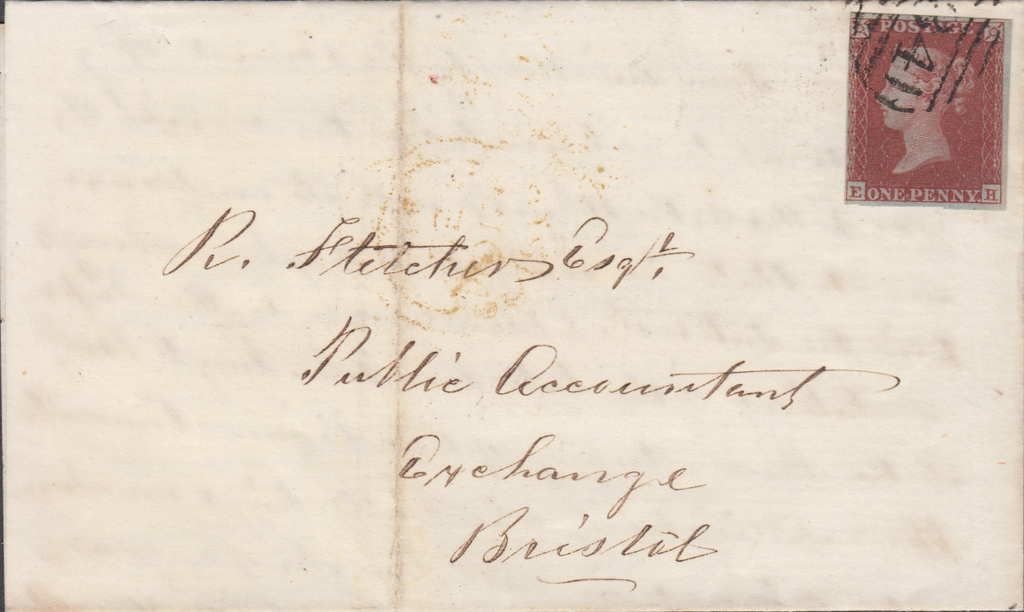 POSTAGE
E ONE PENNY. H
R. Fletcher Esqr.
Public Accountant
Exchange
Bristol